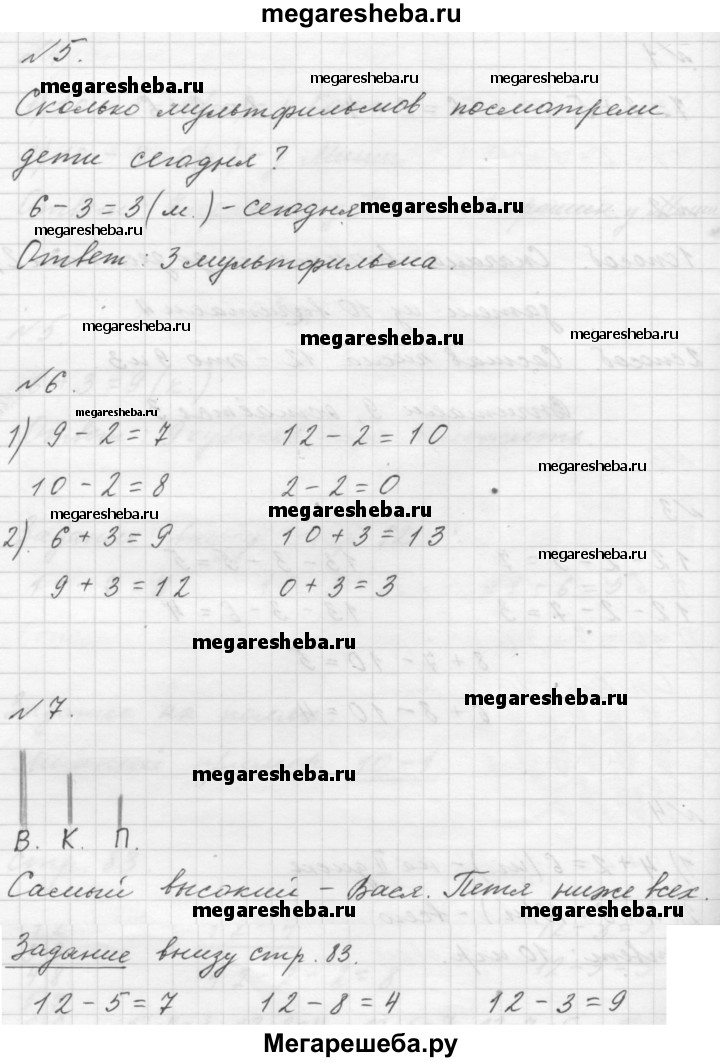 megaresheba.ru
№5.
megaresheba.ru megaresheba.ru megaresheba.ru
Сколько мультфильмов посмотрели
дети сегодня?
6 - 3 = 3 (м.) - сегодня megaresheba.ru
megaresheba.ru
Ответ: 3 мультфильма.
megaresheba.ru megaresheba.ru megaresheba.ru
№6.
megaresheba.ru
1) 9 - 2 = 7 12 - 2 = 10
megaresheba.ru
10 - 2 = 8 2 - 2 = 0
megaresheba.ru megaresheba.ru
2). 6 + 3 = 9 10 + 3 = 13
megaresheba.ru
9 + 3 = 12 0 + 3 = 3
megaresheba.ru
megaresheba.ru
№7.
megaresheba.ru
В. К. П.
Самый высокий - Вася. Петя ниже всех.
megaresheba.ru megaresheba.ru
Задание внизу стр. 83.
12 - 5 = 7 12 - 8 = 4 12 - 3 = 9
Мегарешеба.ру